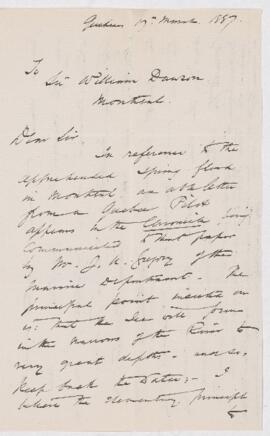 Quebec 17 March 1887.
To
Sir William Dawson
Montreal
Dear Sir,
In reference to the
apprehended Spring flood
in Montreal an able letter
from a Quebec Pilot
appears in the Chronicle being
Communicated to that paper
by Mr. J. U. Gregory of the
Marine Department. The
principal point insisted on
is: that the Ice forms
in the narrows of the River to
very great depths - and so
keep back the Water; - I
the elementary principle